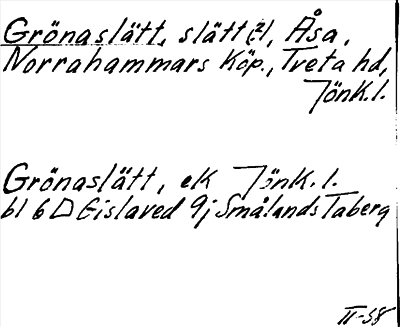 Grönaslätt, slätt(?), Åsa,
Norrahammars Köp., Tveta hd,
Jönk.l.
Grönaslätt, ek Jönk.l.
bl 6 D Gislaved 9j Smålands Taberg
II-58